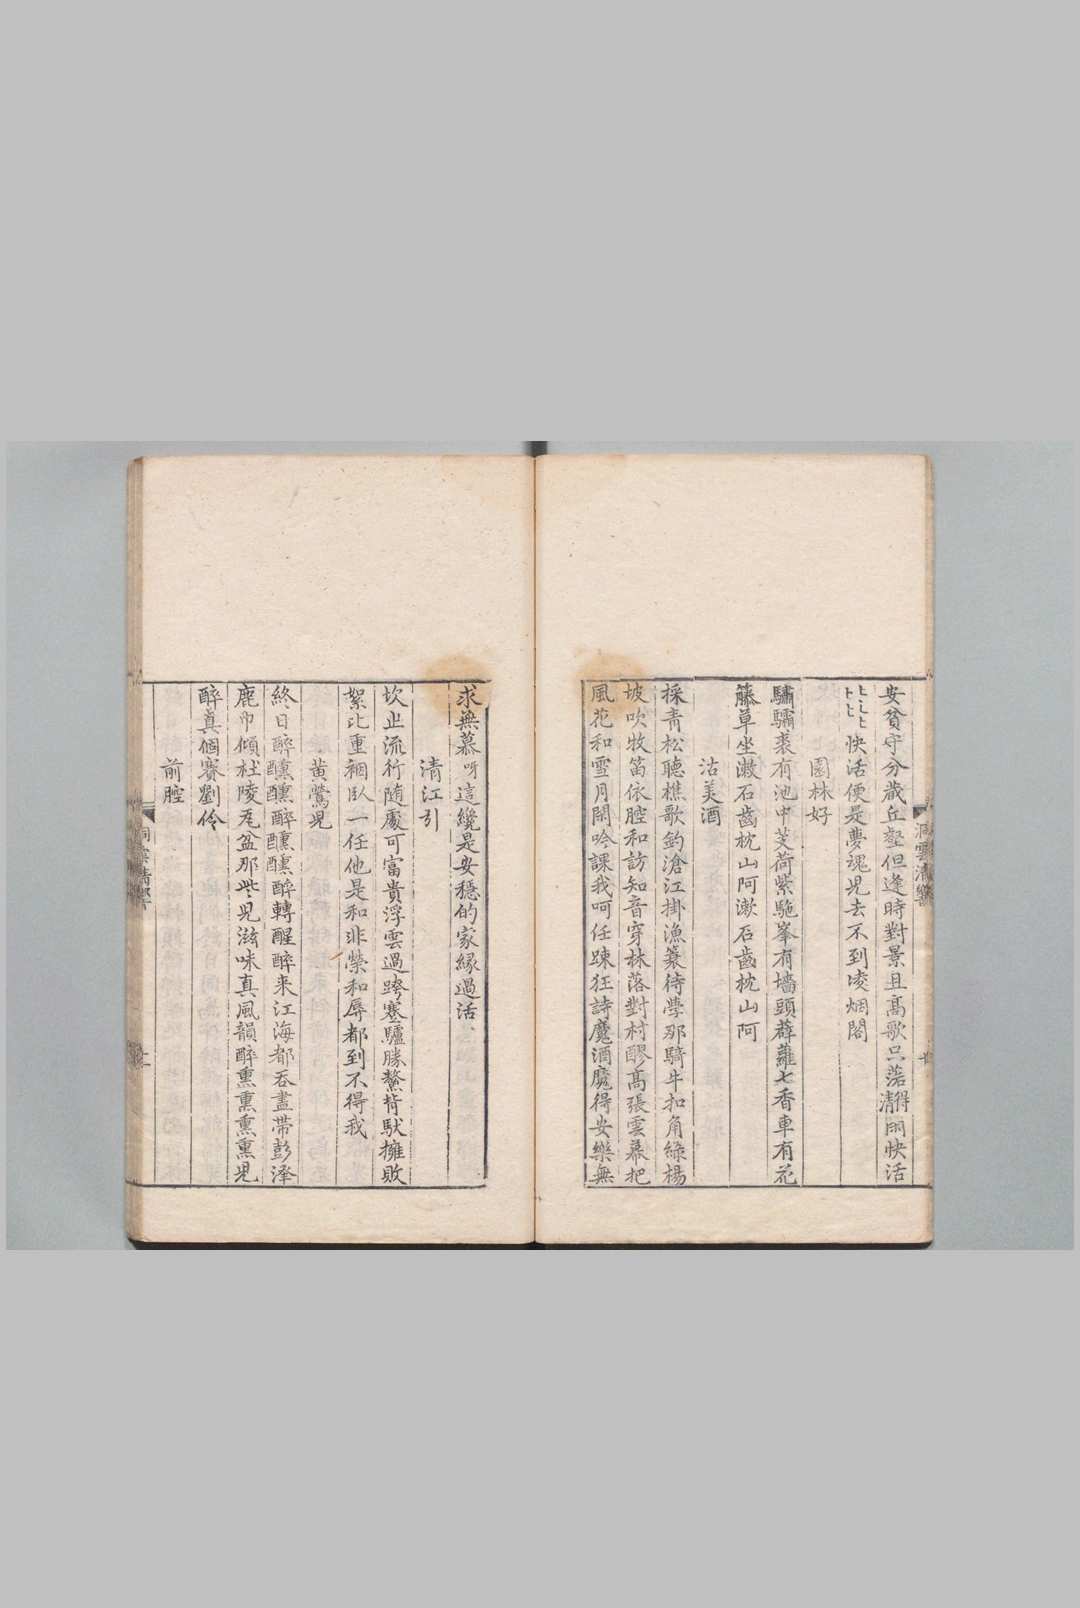 安貧守分藏丘壑但逢時對景且高歌只落得清閑快活
快活便是夢魂兒去不到凌烟閣
園林好
驌驦裘有池中芰荷紫駞峯有墻頭薜蘿七香車有花
藤草坐漱石齒枕山阿漱石齒枕山阿
沽美酒
採青松聽樵歌釣滄江掛漁簑待學那騎牛扣角綠楊
坡吹牧笛依腔和訪知音穿林落對村醪高張雲幕把
風花和雪月閑吟課我呵任踈狂詩魔酒魔得安樂無
求無慕呀這纔是安穩的家緣過活
清江引
坎止流行隨處可富貴浮雲過跨蹇驢勝鰲背馱擁敗
絮比重裀臥一任他是和非榮和辱都到不得我
黄鶯兒
終日醉醺醺醉醺醺醉轉醒醉来江海都吞盡帶彭澤
鹿巾傾杜陵瓦盆那些兒滋味真風韻醉熏熏熏熏兒
醉真個賽劉伶
前腔